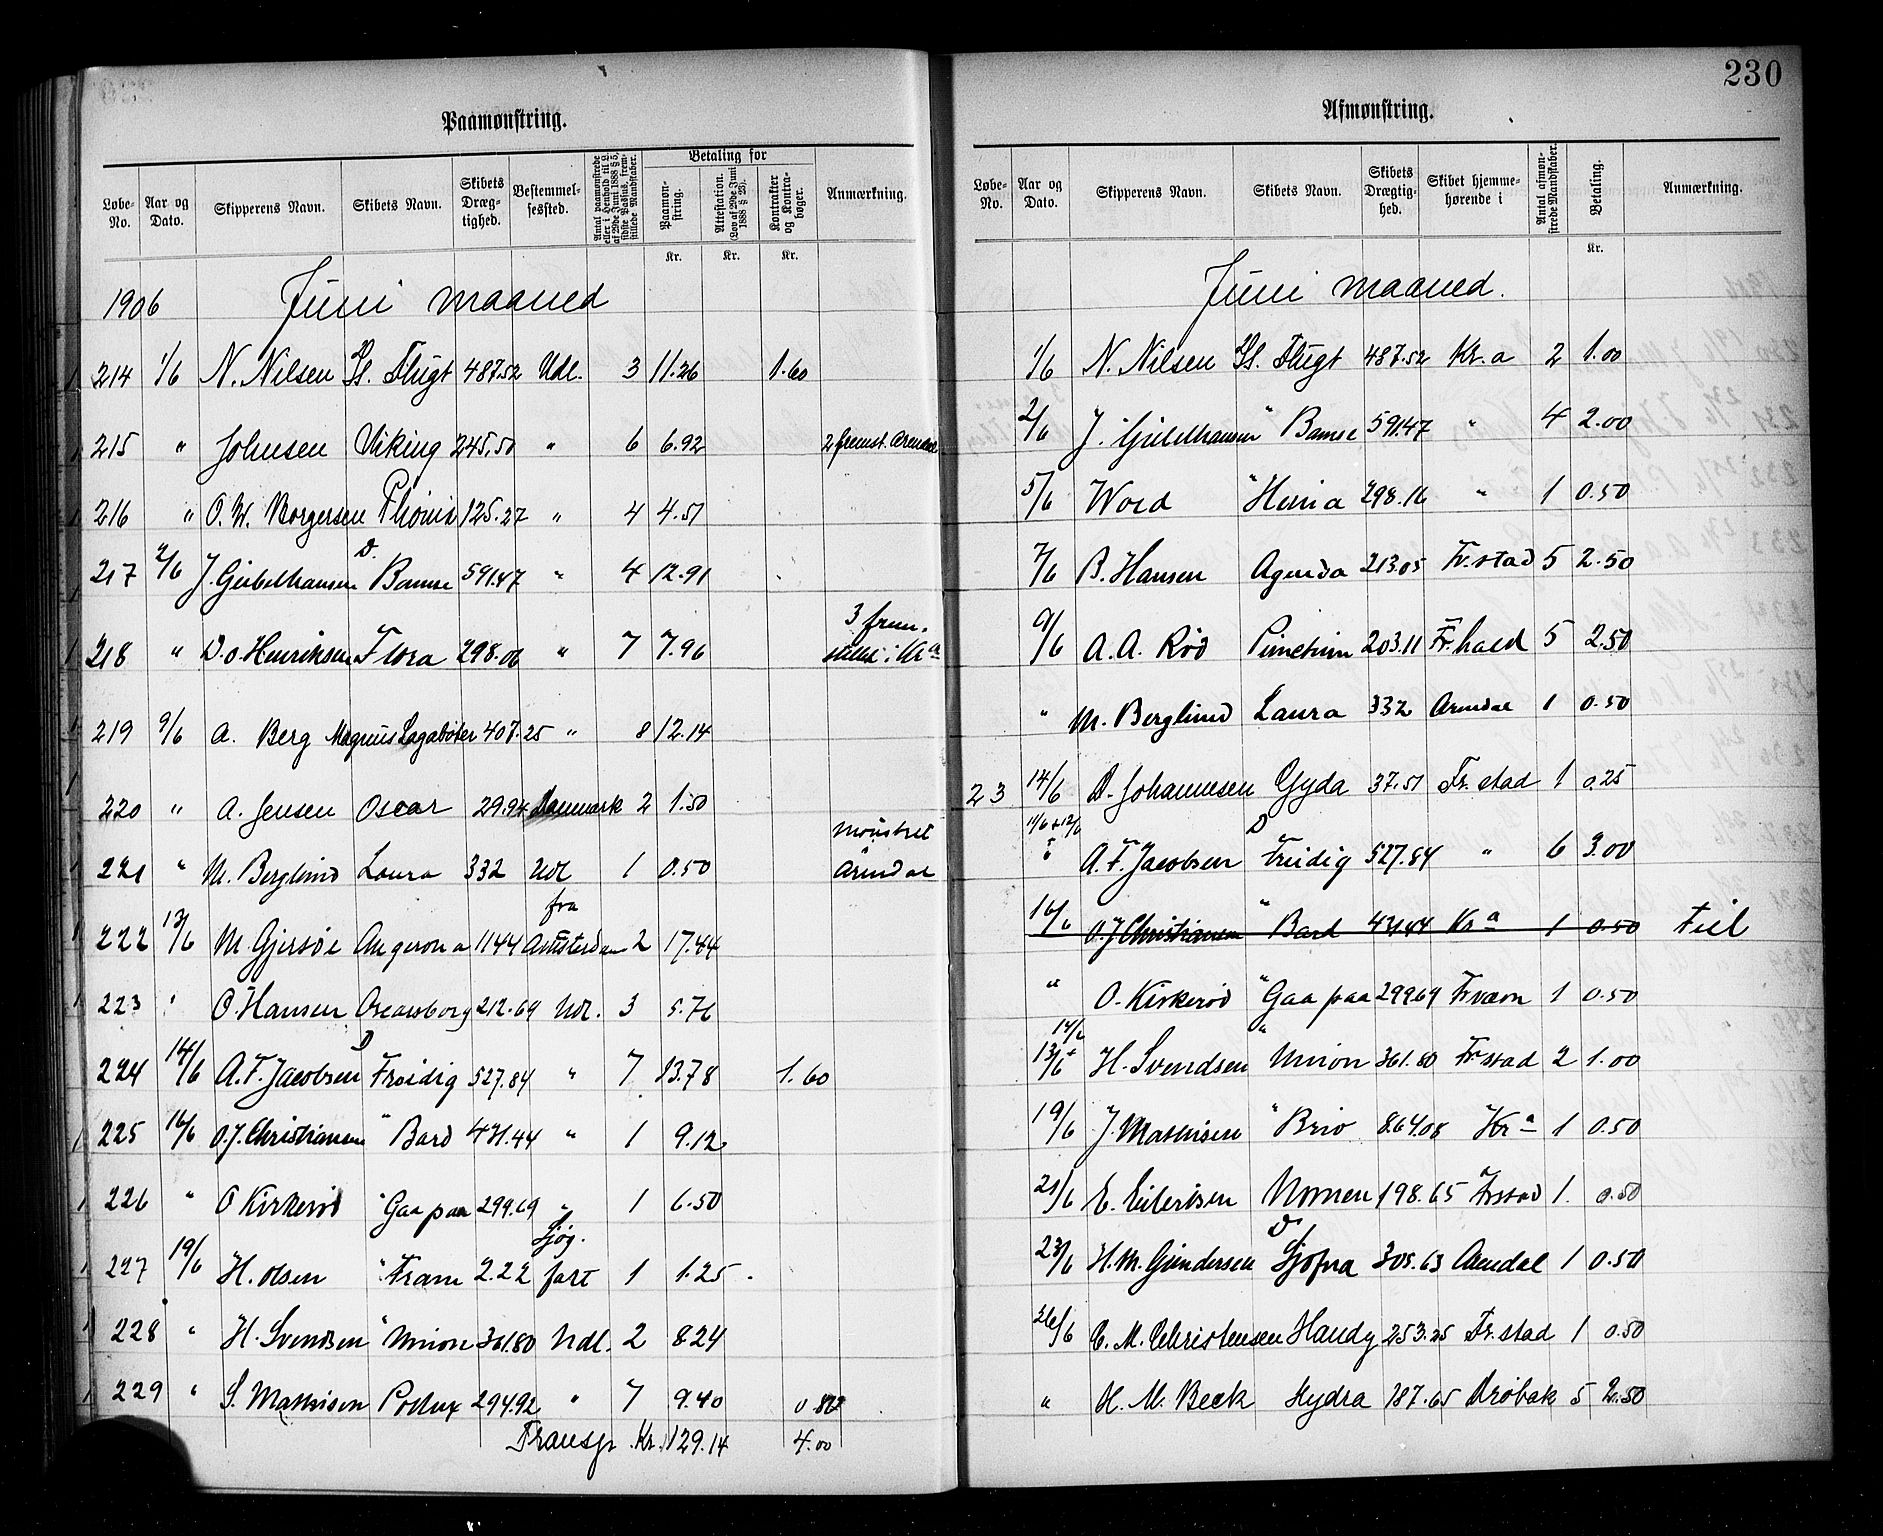 230
Paamønstring.
Løbe-No. Aar og Dato. Skipperens Navn. Skibets Navn. Skibets Dræg-tighed. Bestemmel-sessted. Antal paamønstrede eller i Henhold til L. af 29de Juni 1888 § 5, sidste Passus, frem-stillede Mandskaber. Betaling for Paamøn-string. Attestation. (Lov af 29de Juni 1888 § 23). Kontrakter og Kontra-bøger. Anmærkning.
Kr. Kr. Kr.
1906 Juni maaned
214 1/6 N. Nilsen Sl. Flugt 487.52 Udl. 3 11.26 1.60
215 " Johnsen Viking 245.50 " 6 6.92 2 fremst. Arendal
216 " O. W. Borgersen Phønix 125.27 " 4 4.51
217 2/6 J. Giebelhausen D. Bamse 591.47 " 4 12.91
218 " D. O. Henriksen Flora 298.06 " 7 7.96 3 frem.
219 9/6 A. Berg Magnus Lagabøter 407.25 " 8 12.14
220 " A. Jensen Oscar 29.94 Danmark 2 1.50
221 " M. Berglund Laura 332 Udl 1 0.50 mønstret Arendal
222 13/6 M. Gjersøe Angerona 1144 fra Amsterdam 2 17.44
223 " O. Hansen Oscarsborg 212.69 Udl. 3 5.76
224 14/6 A. F. Jacobsen D Frøidig 527.84 " 7 13.78 1.60
225 16/6 O. J. Christiansen " Bard 431.44 " 1 9.12
226 " O Kirkerød " Gaa paa 299.69 " 1 6.50
227 19/6 H. Olsen " Fram 2.22 Sjøg. fart 1 1.25
228 " H. Svendsen " Union 361.80 Udl. 2 8.24
229 " S. Mathisen Pollux 294.92 " 7 9.40 0.80
Transp. Kr. 129.14 4.00
Afmønstring.
Løbe-No. Aar og Dato. Skipperens Navn. Skibets Navn. Skibets Drægtig-hed. Skibet hjemme-hørende i Antal afmøn-strede Mandskaber. Betaling. Anmærkning.
Kr.
Juni maaned.
1/6 N. Nilsen Sl. Flugt 487.52 Kr.a 2 1.00
2/6 J. Giebelhausen " Bamse 591.47 " 4 2.00
5/6 Wold " 298.16 " 1 0.50
7/6 B. Hansen Agenda 213.05 Fr.stad 5 2.50
9/6 A. A. Rød 203.11 Fr.hald 5 2.50
" M. Berglund Laura 332 Arendal 1 0.50
23 14/6 D. Johannesen Gyda 37.51 Fr.stad 1 0.25
11/6 + 12/6 " A. F. Jacobsen D Frøidig 527.84 " 6 3.00
16/6 O. J. Christiansen " Bard 431.44 Kra 1 0.50 Feil
" O. Kirkerød " Gaa paa 299.69 Fr.værn 1 0.50
14/6 13/6 + H. Svendsen " Union 361.80 Fr.stad 2 1.00
19/6 J. Mathisen " Brio 864.08 Kra 1 0.50
21/6 E. Eilertsen Nornen 198.65 Frstad 1. 0.50
23/6 H. M. Gundersen D Sjofna 305.63 Arendal 1 0.50
26/6 C. M. Christensen Handy 253.25 Fr.stad 1 0.50
" H. M. Beck Hydra 187.65 Drøbak 5 2.50